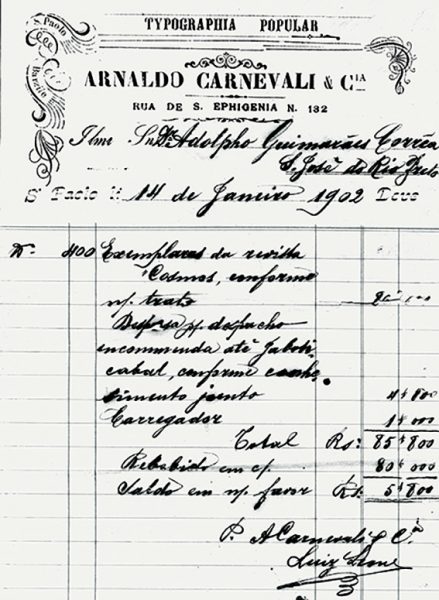 TYPOGRAPHIA POPULAR
S. Paolo
Brazile
ARNALDO CARNEVALI & CIA
RUA DE S. EPHIGENIA N. 132
Illmo Snr. Dr. Adolpho Guimarães Corrêa
S. José do Rio Preto
S. Paolo li 14 de Janeiro 1902 Deve
400 Exemplares da revista
Cosmos, conforme
n/. trato
Despesa p/. despacho
encommenda até Jaboti
cabal, conforme conhe
cimento junto 4$800
Carregador 1$000
Total Rs: 85$800
Recebido em c/. 80$000
Saldo em n/. favor Rs: 5$800
P. A Carnevali & Cia
Luiz Leme